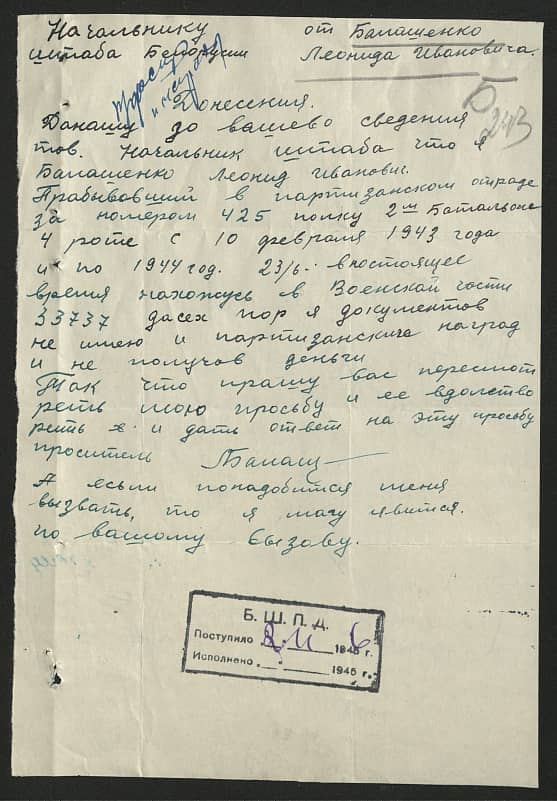 Начальнику
штаба Белорусии
от Балашенко
Леонида Ивановича.
Б
243
Донесения.
Данашу до вашево сведения
тов. Начальник штаба что я
Балашенко Леонид Иванович.
Прабывавший в партизанском отраде
за номером 425 полку 2м Батальоне
4 роте с 10 февраля 1943 года
и по 1944 год. 23/6. внастоящее
время нахожусь в Военской части
33737 дасех пор я документов
не имею и партизанских наград
и не получав деньги
Так что прашу вас пересмот
реть мою прозьбу и ее вдолство
реть и дать ответ на эту просьбу
проситель Балаш
А если понадобится меня
вызвать, то я магу явится.
по вашому вызову.
Б. Ш. П. Д.
Поступило 1946 г.
Исполнено 1946 г.